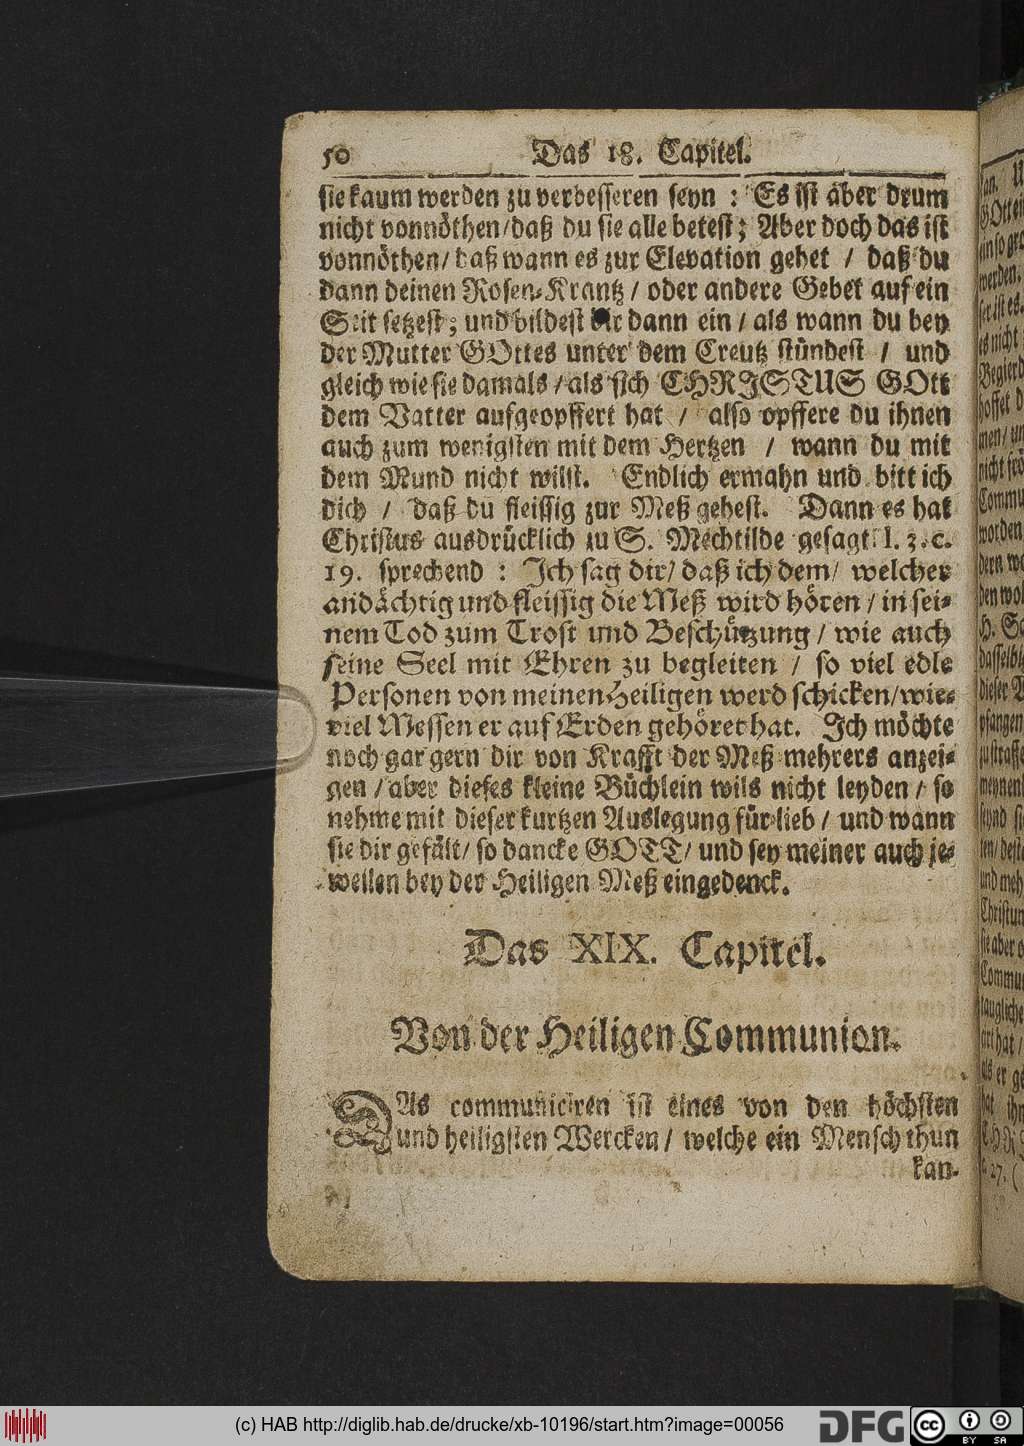 50 Das 18. Capitel.
sie kaum werden zu verbesseren seyn : Es ist aber drum
nicht vonnöthen/ daß du sie alle betest; Aber doch das ist
vonnöthen/ daß wann es zur Elevation gehet / daß du
dann deinen Rosen-Krantz / oder andere Gebet auf ein
Seit setzest; und bildest dir dann ein / als wann du bey
der Mutter GOttes unter dem Creutz stündest / und
gleich wie sie damals / als sich CHRISTUS GOtt
dem Vatter aufgeopffert hat / also opffere du ihnen
auch zum wenigsten mit dem Hertzen / wann du mit
dem Mund nicht wilst. Endlich ermahn und bitt ich
dich / daß du fleissig zur Meß gehest. Dann es hat
Christus ausdrücklich zu S. Mechtilde gesagt l. 3. c.
19. sprechend : Ich sag dir/ daß ich dem/ welcher
andächtig und fleissig die Meß wird hören / in sei-
nem Tod zum Trost und Beschützung / wie auch
seine Seel mit Ehren zu begleiten / so viel edle
Personen von meinen Heiligen werd schicken/ wie-
viel Messen er auf Erden gehöret hat. Ich möchte
noch gar gern dir von Krafft der Meß mehrers anzei-
gen / aber dieses kleine Büchlein wils nicht leyden / so
nehme mit dieser kurtzen Auslegung für lieb / und wann
sie dir gefält/ so dancke GOTT/ und sey meiner auch je-
weilen bey der Heiligen Meß eingedenck.
Das XIX. Capitel.
Von der Heiligen Communion.
DAs communiciren ist eines von den höchsten
und heiligsten Wercken / welche ein Mensch thun
kan.
(c) HAB http://diglib.hab.de/drucke/xb-10196/start.htm?image=00056
DFG
cc BY SA